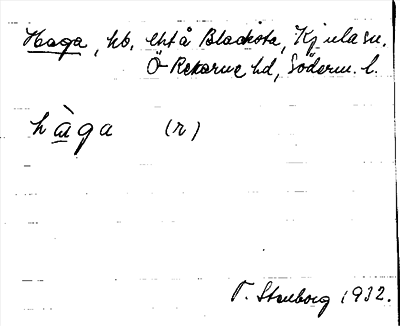 Haga, hb. å Blacksta, Kjula sn.
Ö Rekarne hd, Söderm. l.
hàga (r)
Stenborg 1932.